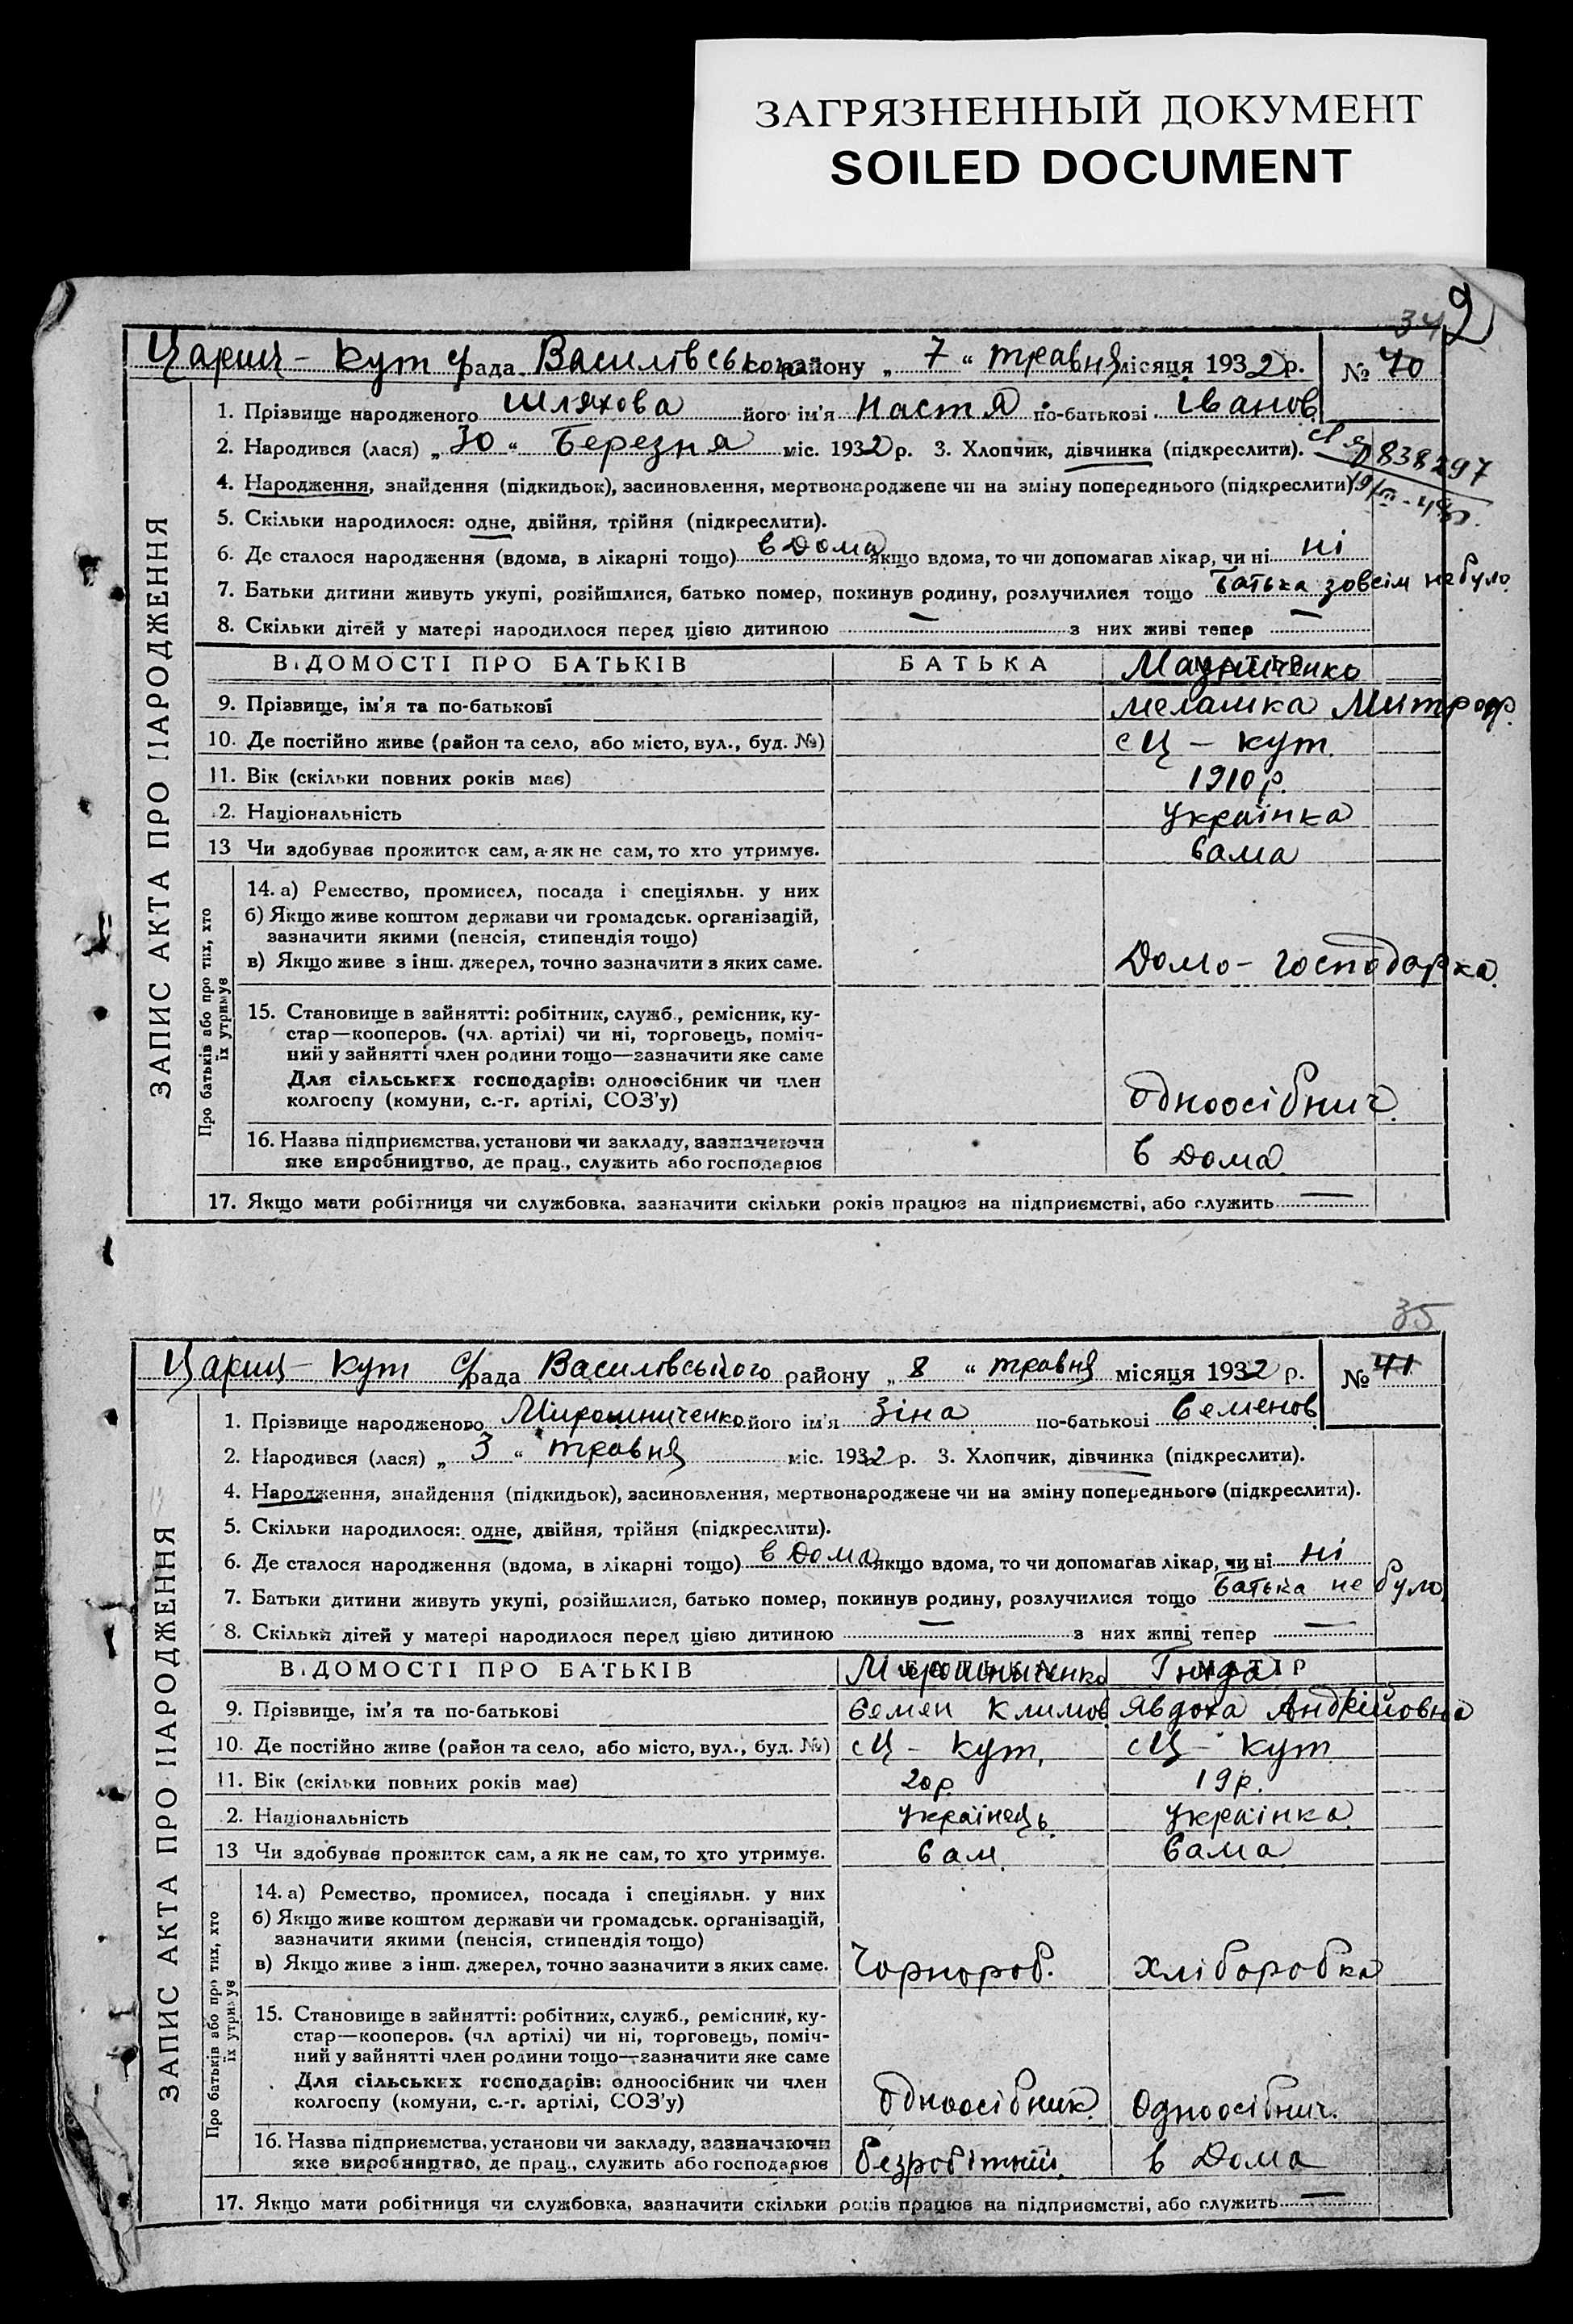 ЗАГРЯЗНЕННЫЙ ДОКУМЕНТ
SOILED DOCUMENT
2
34
Цариц-Кут с/рада Василівського району „ 7 “ травня місяця 1932 р. № 40
1. Прізвище народженого Шляхова його ім'я Настя по-батькові Іванов.
2. Народився (лася) „ 30 “ Березня міс. 1932 р. 3. Хлопчик, дівчинка (підкреслити).
838297
4. Народження, знайдення (підкидьок), засиновлення, мертвонароджене чи на зміну попереднього (підкреслити).
5. Скільки народилося: одне, двійня, трійня (підкреслити).
6. Де сталося народження (вдома, в лікарні тощо) в Дома якщо вдома, то чи допомагав лікар, чи ні ні
7. Батьки дитини живуть укупі, розійшлися, батько помер, покинув родину, розлучилися тощо батька зовсім не було.
8. Скільки дітей у матері народилося перед цією дитиною — з них живі тепер —
ВІДОМОСТІ ПРО БАТЬКІВ БАТЬКА МАТІР
9. Прізвище, ім'я та по-батькові Мазниченко Меламка Митроф.
10. Де постійно живе (район та село, або місто, вул., буд. №) с Ц – Кут.
11. Вік (скільки повних років має) 1910 р.
2. Національність Українка
13 Чи здобував прожиток сам, а як не сам, то хто утримує. Сама
ЗАПИС АКТА ПРО НАРОДЖЕННЯ
Про батьків або про тих, хто їх утримує
14. а) Ремество, промисел, посада і спеціяльн. у них
б) Якщо живе коштом держави чи громадськ. організацій,
зазначити якими (пенсія, стипендія тощо)
в) Якщо живе з інш. джерел, точно зазначити з яких саме. Домо-господарка.
15. Становище в зайнятті: робітник, служб., ремісник, ку-
стар—кооперов. (чл. артілі) чи ні, торговець, поміч-
ний у зайнятті член родини тощо—зазначити яке саме
Для сільських господарів: одноосібник чи член
колгоспу (комуни, с.-г. артілі, СОЗ'у) Одноосібнич.
16. Назва підприємства, установи чи закладу, зазначаючи
яке виробництво, де прац., служить або господарює в Дома
17. Якщо мати робітниця чи службовка, зазначити скільки років працює на підприємстві, або служить —
35
Цариц-Кут с/рада Василівського району „ 8 “ травня місяця 1932 р. № 41
1. Прізвище народженого Мирошниченко його ім'я Зіна по-батькові Семенов
2. Народився (лася) „ 3 “ травня міс. 1932 р. 3. Хлопчик, дівчинка (підкреслити).
4. Народження, знайдення (підкидьок), засиновлення, мертвонароджене чи на зміну попереднього (підкреслити).
5. Скільки народилося: одне, двійня, трійня (підкреслити).
6. Де сталося народження (вдома, в лікарні тощо) в Дома якщо вдома, то чи допомагав лікар, чи ні ні
7. Батьки дитини живуть укупі, розійшлися, батько помер, покинув родину, розлучилися тощо батька не було
8. Скільки дітей у матері народилося перед цією дитиною — з них живі тепер —
ВІДОМОСТІ ПРО БАТЬКІВ БАТЬКА МАТІР
Мирошниченко Гнида
9. Прізвище, ім'я та по-батькові Семен Климов Явдоха Андрійовна
10. Де постійно живе (район та село, або місто, вул., буд. №) с Ц – Кут, с Ц – Кут
11. Вік (скільки повних років має) 20 р. 19 р.
2. Національність Українець. Українка.
13 Чи здобував прожиток сам, а як не сам, то хто утримує. Сам. Сама
ЗАПИС АКТА ПРО НАРОДЖЕННЯ
Про батьків або про тих, хто їх утримує
14. а) Ремество, промисел, посада і спеціяльн. у них
б) Якщо живе коштом держави чи громадськ. організацій,
зазначити якими (пенсія, стипендія тощо)
в) Якщо живе з інш. джерел, точно зазначити з яких саме. Чорнороб. Хліборобка
15. Становище в зайнятті: робітник, служб., ремісник, ку-
стар—кооперов. (чл артілі) чи ні, торговець, поміч-
ний у зайнятті член родини тощо—зазначити яке саме
Для сільських господарів: одноосібник чи член
колгоспу (комуни, с.-г. артілі, СОЗ'у) Одноосібник. Одноосібнич.
16. Назва підприємства, установи чи закладу, зазначаючи
яке виробництво, де прац., служить або господарює безробітний. в Дома
17. Якщо мати робітниця чи службовка, зазначити скільки років працює на підприємстві, або служить —